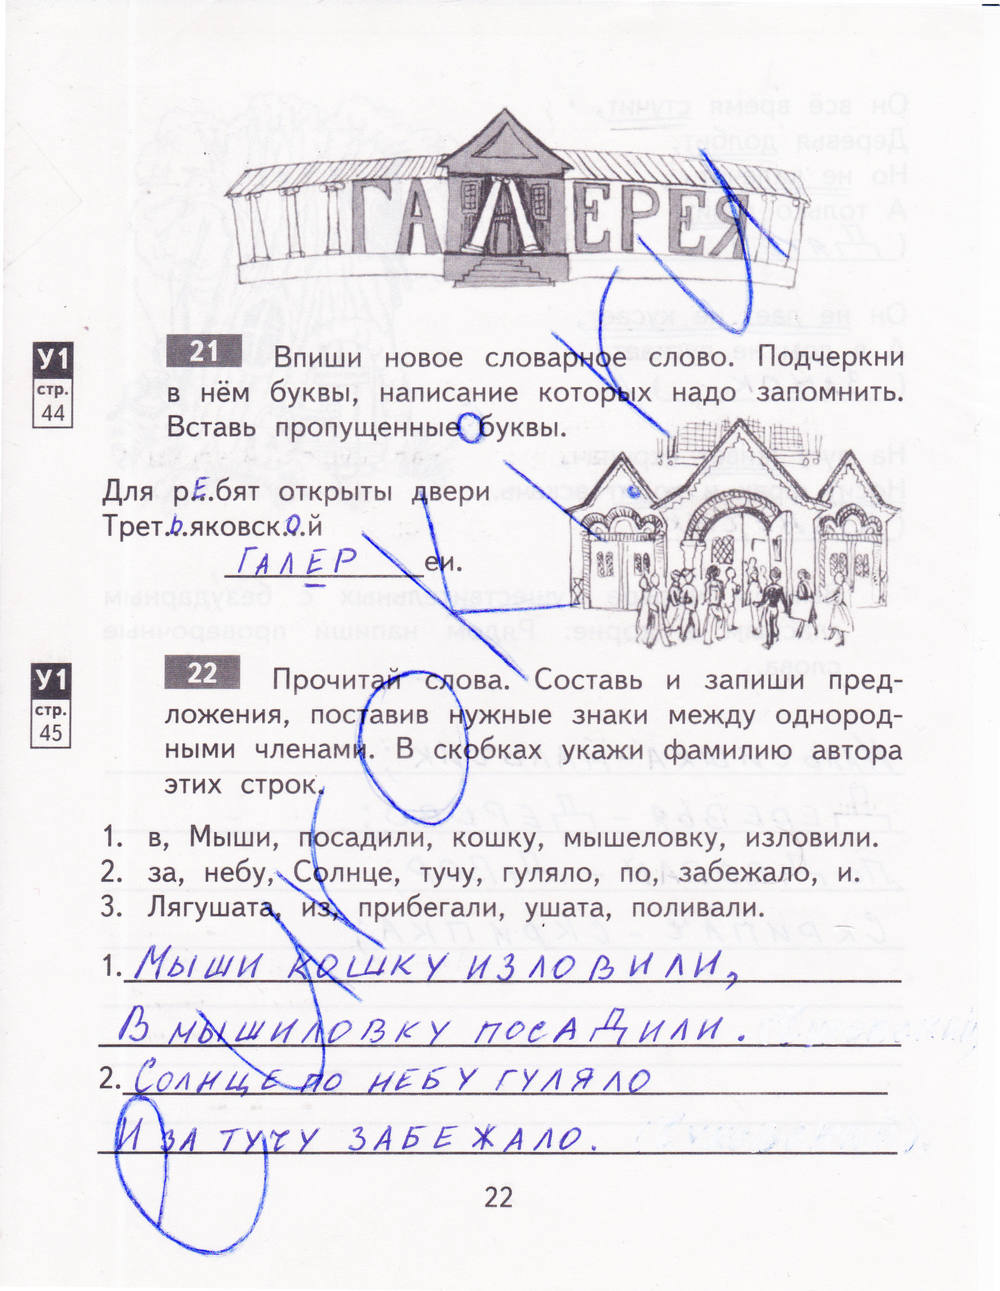 ГАЛЕРЕЯ
У1
стр.
44
21 Впиши новое словарное слово. Подчеркни
в нём буквы, написание которых надо запомнить.
Вставь пропущенные буквы.
Для р.Е.бят открыты двери
Трет.Ь.яковск.О.й
ГАЛЕР еи.
У1
стр.
45
22 Прочитай слова. Составь и запиши пред-
ложения, поставив нужные знаки между однород-
ными членами. В скобках укажи фамилию автора
этих строк.
1. в, Мыши, посадили, кошку, мышеловку, изловили.
2. за, небу, Солнце, тучу, гуляло, по, забежало, и.
3. Лягушата, из, прибегали, ушата, поливали.
1. МЫШИ КОШКУ ИЗЛОВИЛИ,
В МЫШИЛОВКУ ПОСАДИЛИ.
2. СОЛНЦЕ ПО НЕБУ ГУЛЯЛО
И ЗА ТУЧУ ЗАБЕЖАЛО.
22